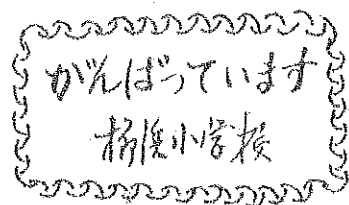 がんばっています
柳浜小学校